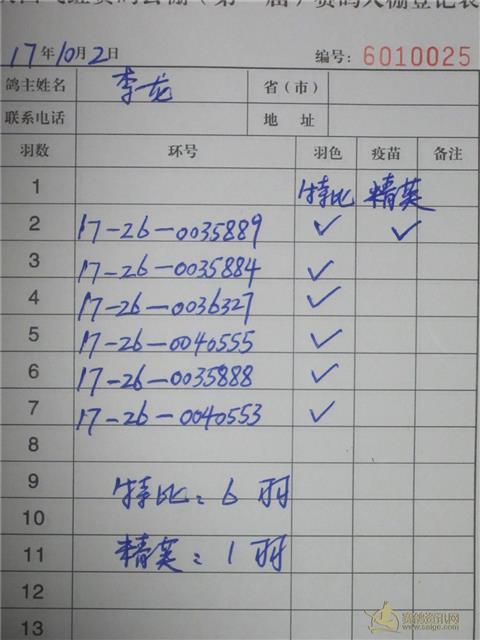 赛鸽入棚登记表
17年10月2日 编号：6010025
鸽主姓名 李龙 省（市）
联系电话 地 址
羽数 环号 羽色 疫苗 备注
1 特比 精英
2 17-26-0035889 ✓ ✓
3 17-26-0035884 ✓
4 17-26-0036327 ✓
5 17-26-0040555 ✓
6 17-26-0035888 ✓
7 17-26-0040553 ✓
8
9 特比：6羽
10
11 精英：1羽
12
13
赛鸽资讯网
www.saige.com